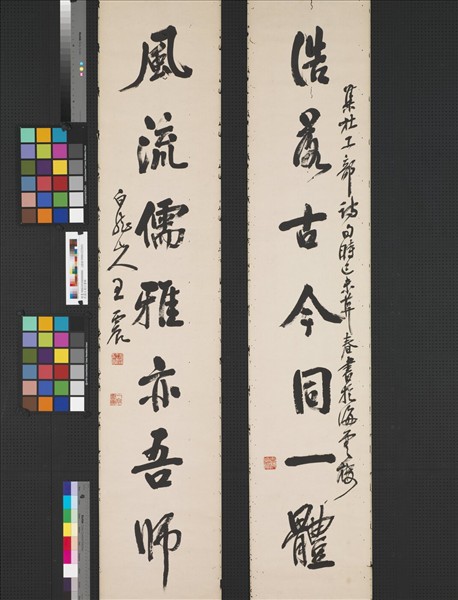 浩古今同一體
集杜工部詩句時己未莫春書於海雲樓
風流儒雅亦吾師
白龍山人王震